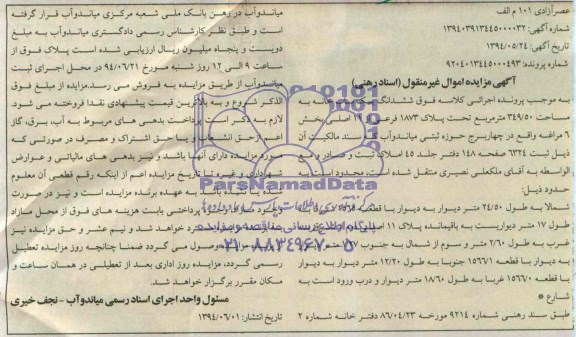 عصرآزادی ۱۰۱ م الف
شماره آگهی: ۱۳۹۴۰۳۹۱۳۴۴۵۰۰۰۰۳۲
تاریخ آگهی: ۱۳۹۴/۰۵/۲۴
شماره پرونده: ۹۲۰۴۰۱۳۴۴۵۰۰۰۴۹۳
آگهی مزایده اموال غیرمنقول (اسناد رهنی)
به موجب پرونده اجرائی کلاسه فوق ششدانگ خانه به
مساحت ۳۴۹/۵۰ مترمربع تحت پلاک ۱۸۷۳ فرعی از ۱۹ اصلی بخش
۶ مراغه واقع در چهاربرج حوزه ثبتی میاندوآب که سند مالکیت آن
ذیل ثبت ۶۳۲۴ صفحه ۱۴۸ دفتر جلد ۴۵ املاک ثبت و صادر و مع
الواسطه به آقای ملکعلی نصیری منتقل شده است، محدود است به
حدود ذیل:
شمالا به طول ۲۴/۵۰ متر دیوار به دیوار با قطعه
طول ۱۷ متر دیواریست به باقیمانده پلاک ۱۱ اصلی
غرب به طول ۲/۶۰ متر و سوم از شمال به جنوب
با قطعه ۱۵۶۶/۱ جنوبا به طول ۱۲/۲۰ متر دیوار به دیوار
با قطعه ۱۵۶۶/۰ غربا به طول ۱۸/۶۰ متر دیوار و درب ورود است به
شارع *
طبق سند رهنی شماره ۹۲۱۴ مورخه ۸۶/۰۴/۲۳ دفتر خانه شماره ۲
میاندوآب در رهن بانک ملی شعبه مرکزی میاندوآب قرار گرفته
است و طبق نظر کارشناس رسمی دادگستری میاندوآب به مبلغ
دویست و پنجاه میلیون ریال ارزیابی شده است پلاک فوق از
ساعت ۹ الی ۱۲ روز شنبه مورخ ۹۴/۰۶/۲۱ در محل اجرای ثبت
میاندوآب از طریق مزایده به فروش می رسد.مزایده از مبلغ فوق
الذکر شروع و به بالاترین قیمت پیشنهادی نقدا فروخته می شود
لازم به ذکر است پرداخت بدهی های مربوط به آب، برق، گاز
اعم از حق انشعاب و یا حق اشتراک و مصرف در صورتی که
مورد مزایده دارای آنها باشد و نیز بدهی های مالیاتی و عوارض
شهرداری و غیره تا تاریخ مزایده اعم از اینکه رقم قطعی آن معلوم
شده یا نشده باشد به عهده برنده مزایده است و نیز در صورت
وجود مازاد وجوه پرداختی بابت هزینه های فوق از محل مازاد
مسترد خواهد شد و نیم عشر و حق مزایده نیز
وصول می گردد ضمنا چنانچه روز مزایده تعطیل
رسمی گردد، مزایده روز اداری بعد از تعطیلی در همان ساعت و
مکان مقرر برگزار خواهد شد.
مسئول واحد اجرای اسناد رسمی میاندوآب - نجف خیری
تاریخ انتشار: ۱۳۹۴/۰۶/۰۱
ParsNamadData
۰۲۱-۸۸۳۴۹۶۷۰-۵